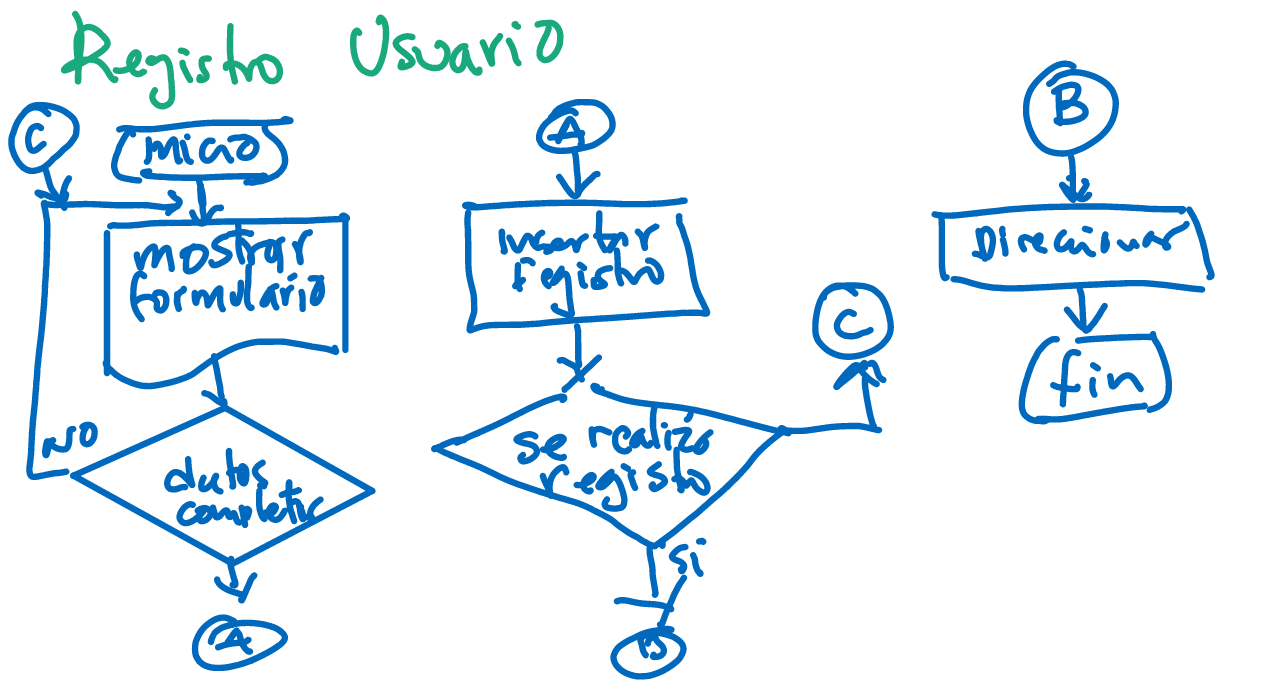 Registro Usuario
C
Inicio
mostrar
formulario
NO
datos
completos
A
A
Insertar
registro
se realizo
registo
C
si
B
B
Direccionar
fin